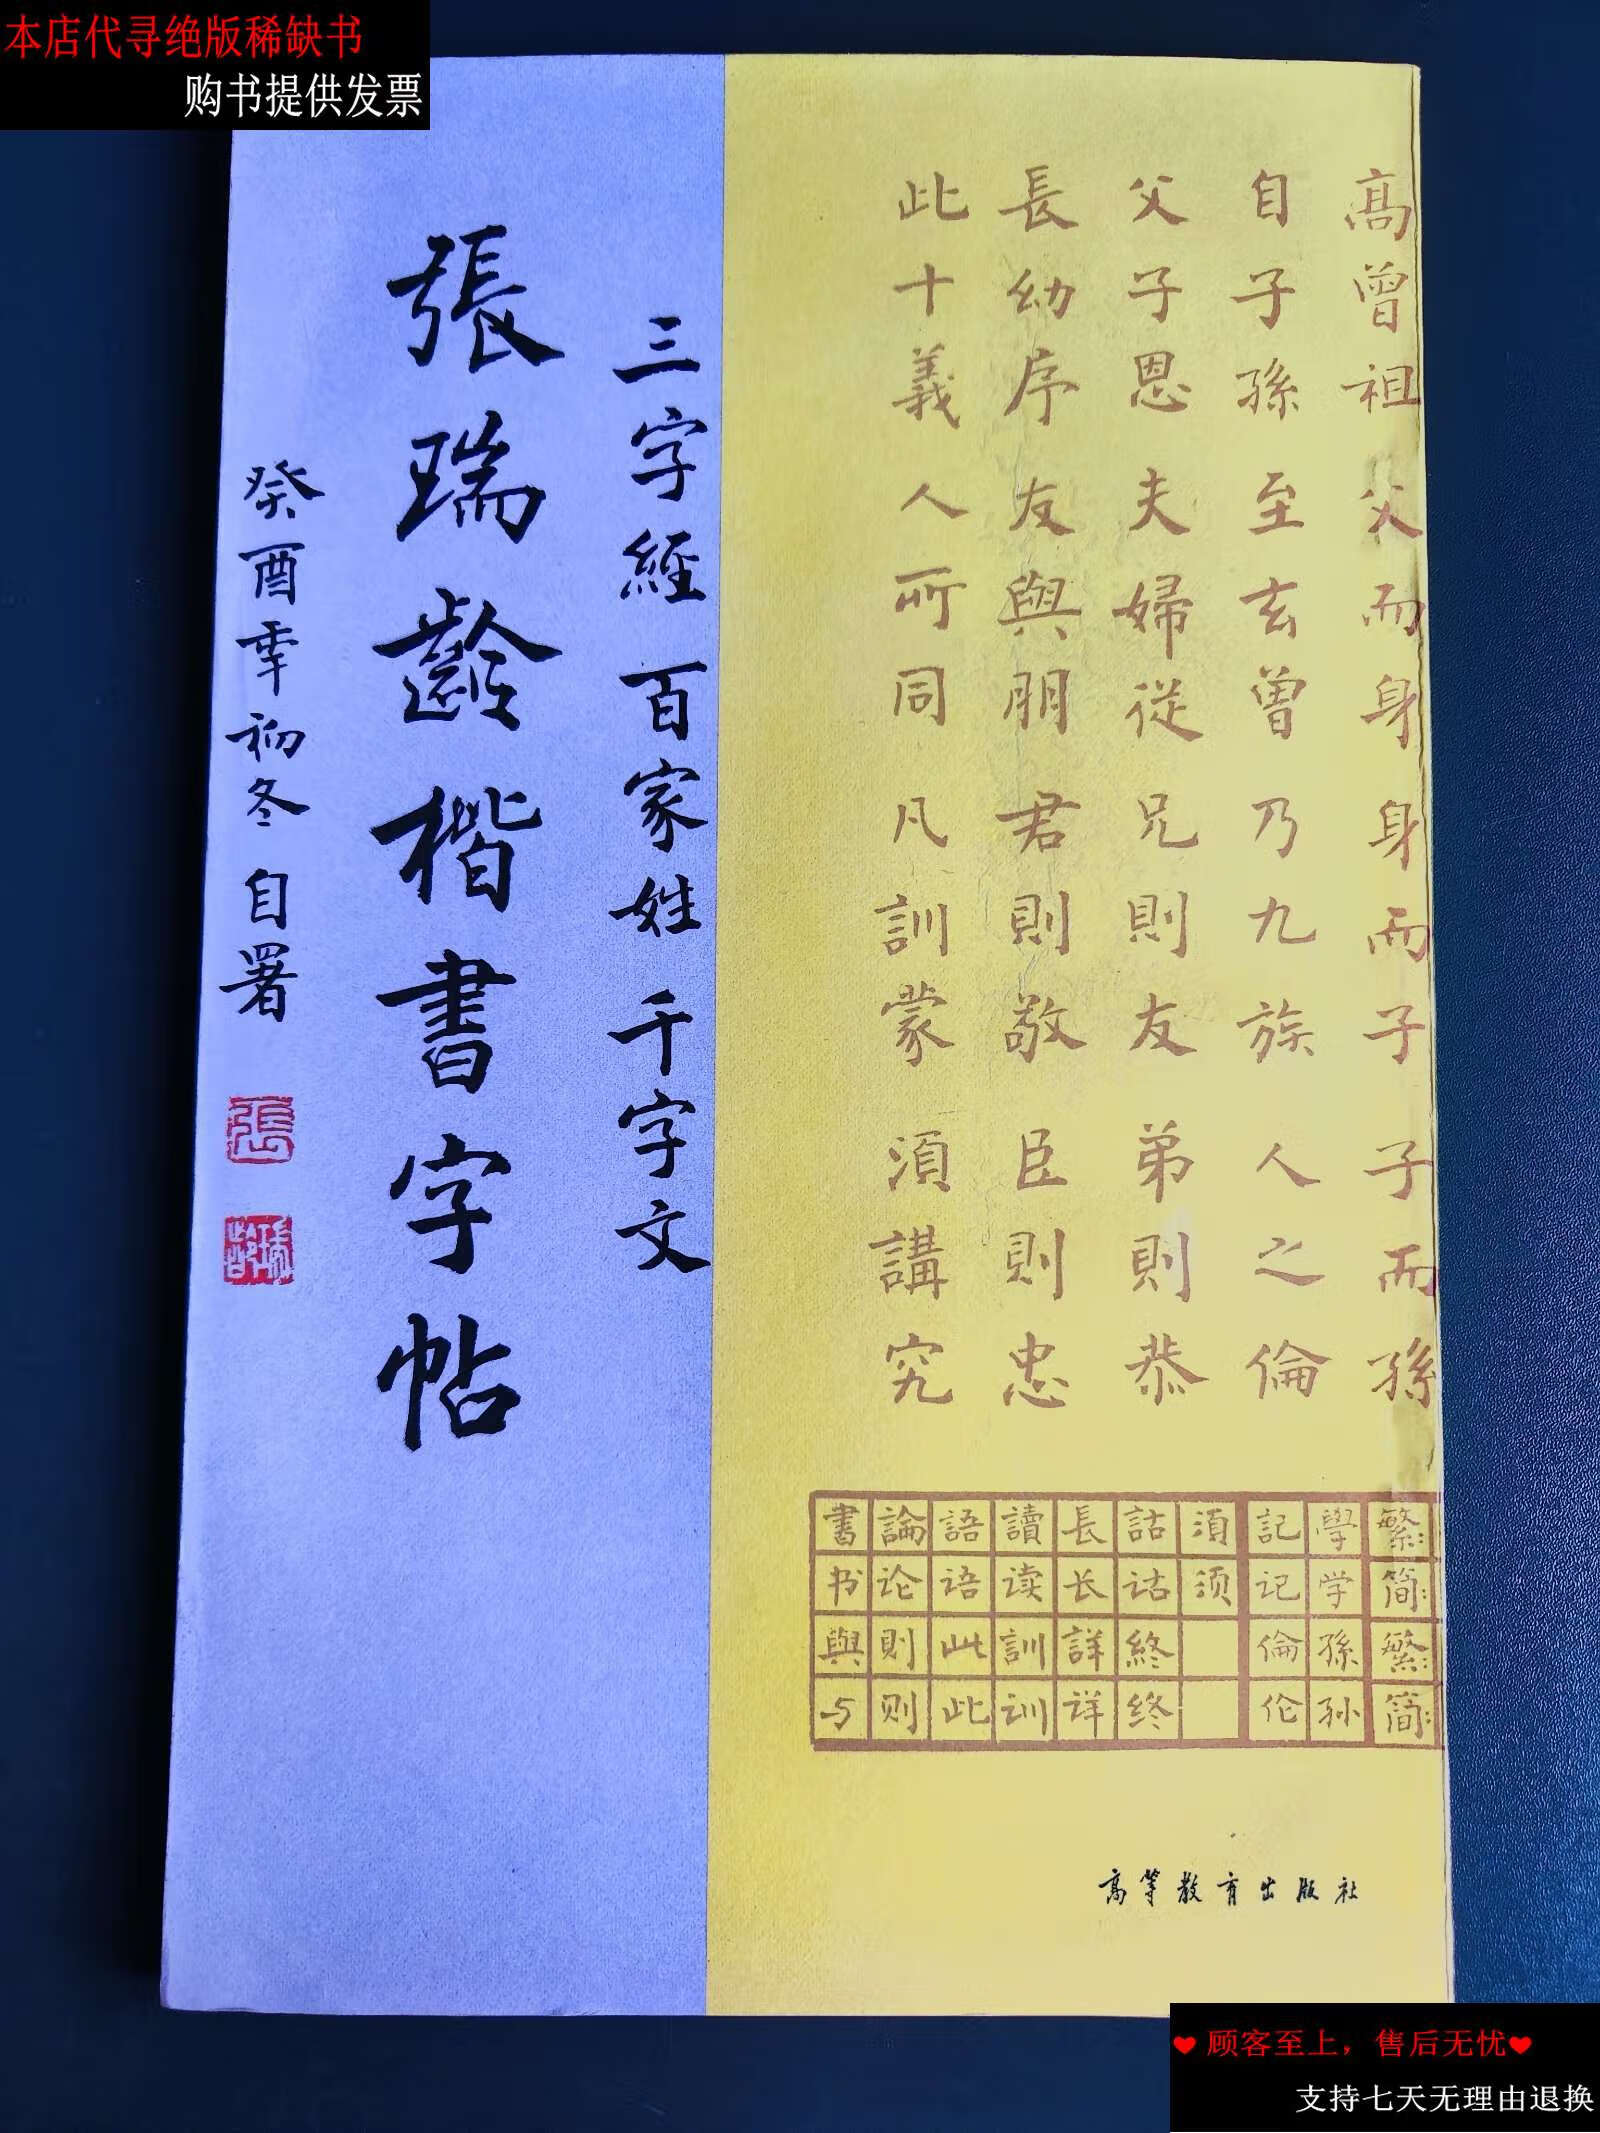 本店代寻绝版稀缺书
购书提供发票
高曾祖 父而身 身而子 子而孫
自子孫 至玄曾 乃九族 人之倫
父子恩 夫婦從 兄則友 弟則恭
長幼序 友與朋 君則敬 臣則忠
此十義 人所同 凡訓蒙 須講究
三字經 百家姓 千字文
張瑞齡楷書字帖
癸酉年初冬 自署
張
書論語讀長詁須記學繁:
书论语读长诂须记学简:
與則此訓詳終倫孫繁:
与则此训详终伦孙简:
高等教育出版社
❤顾客至上，售后无忧❤
支持七天无理由退换